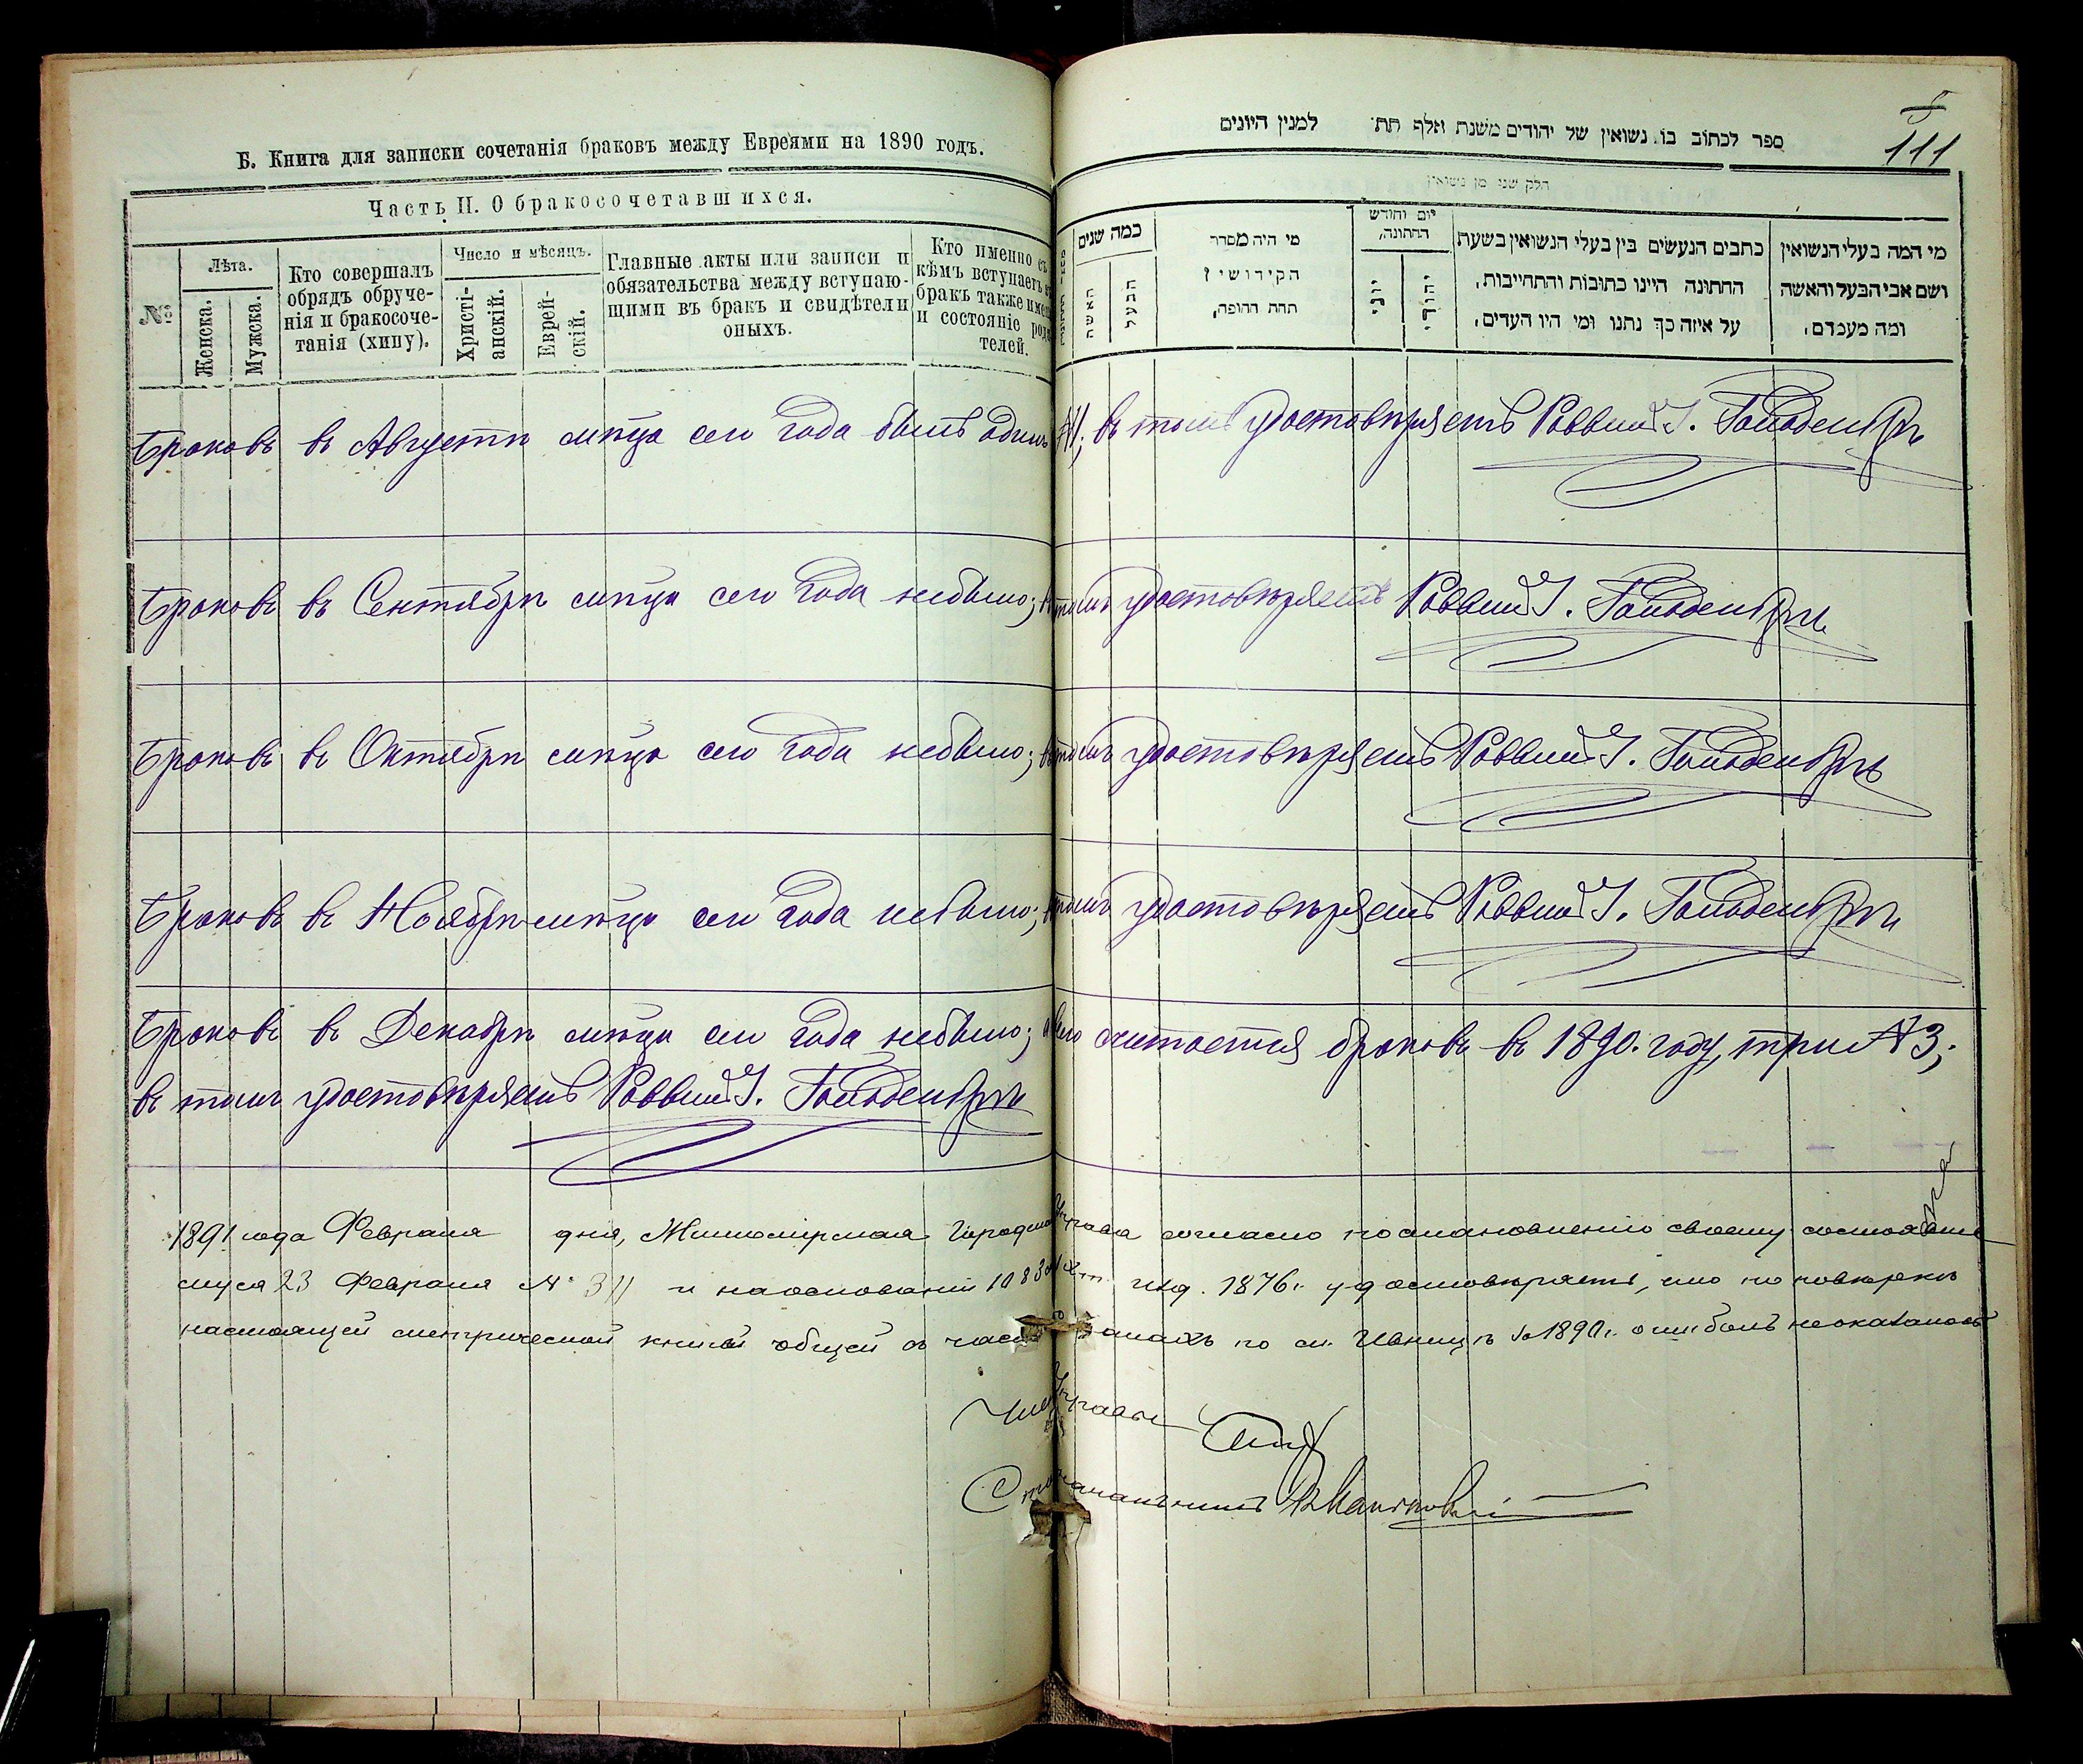 Б. Книга для записки сочетанія браковъ между Евреями на 1890 годъ.
Часть II. О бракосочетавшихся.
№
Лѣта.
Женска.
Мужска.
Кто совершалъ
обрядъ обруче-
нія и бракосоче-
танія (хипу).
Число и мѣсяцъ.
Христі-
анскій.
Еврей-
скій.
Главные акты или записи и
обязательства между вступаю-
щими въ бракъ и свидѣтели
оныхъ.
Кто именно съ
кѣмъ вступаетъ въ
бракъ также имена
и состояніе роди
телей.
111
ספר לכתוב בו נשואין של יהודים משנת אלף תת למנין היונים
חלק שני מן נשואין
מי המה בעלי הנשואין
ושם אבי הבעל והאשה
ומה מעמדם,
כתבים הנעשים בין בעלי הנשואין בשעת
החתונה היינו כתובות והתחייבות,
על איזה כך נתנו ומי היו העדים,
יום וחודש
החתונה,
יהודי
יוני
מי היה מסדר
הקידושין
תחת החופה,
כמה שנים
הבעל
האשה
Браковъ въ Августѣ мѣцѣ сего года былъ одинъ №1; въ томъ удостовѣряетъ Раввинъ І. Гольденбргъ
Браковъ въ Сентябрѣ мѣцѣ сего года небыло; въ томъ удостовѣряетъ Раввинъ І. Гольденбргъ
Браковъ въ Октябрѣ мѣцѣ сего года небыло; въ томъ удостовѣряетъ Раввинъ І. Гольденбргъ
Браковъ въ Ноябрѣ мѣцѣ сего года небыло; въ томъ удостовѣряетъ Раввинъ І. Гольденбргъ
Браковъ въ Декабрѣ мѣцѣ сего года небыло; а всего считается браковъ въ 1890. году, три №3;
въ томъ удостовѣряетъ Раввинъ І. Гольденбргъ
1891 года Февраля дня, Житомірская Городская Управа согласно постановленію своему состоявше
муся 23 Февраля № 311 и на основаніи 1083 ст. изд. 1876 г. удостовѣряетъ, что по повѣркѣ
настоящей метрической книги общей въ частяхъ по м. Ивницѣ за 1890 г. ошибокъ неоказалось
Членъ Управы
Столоначальникъ